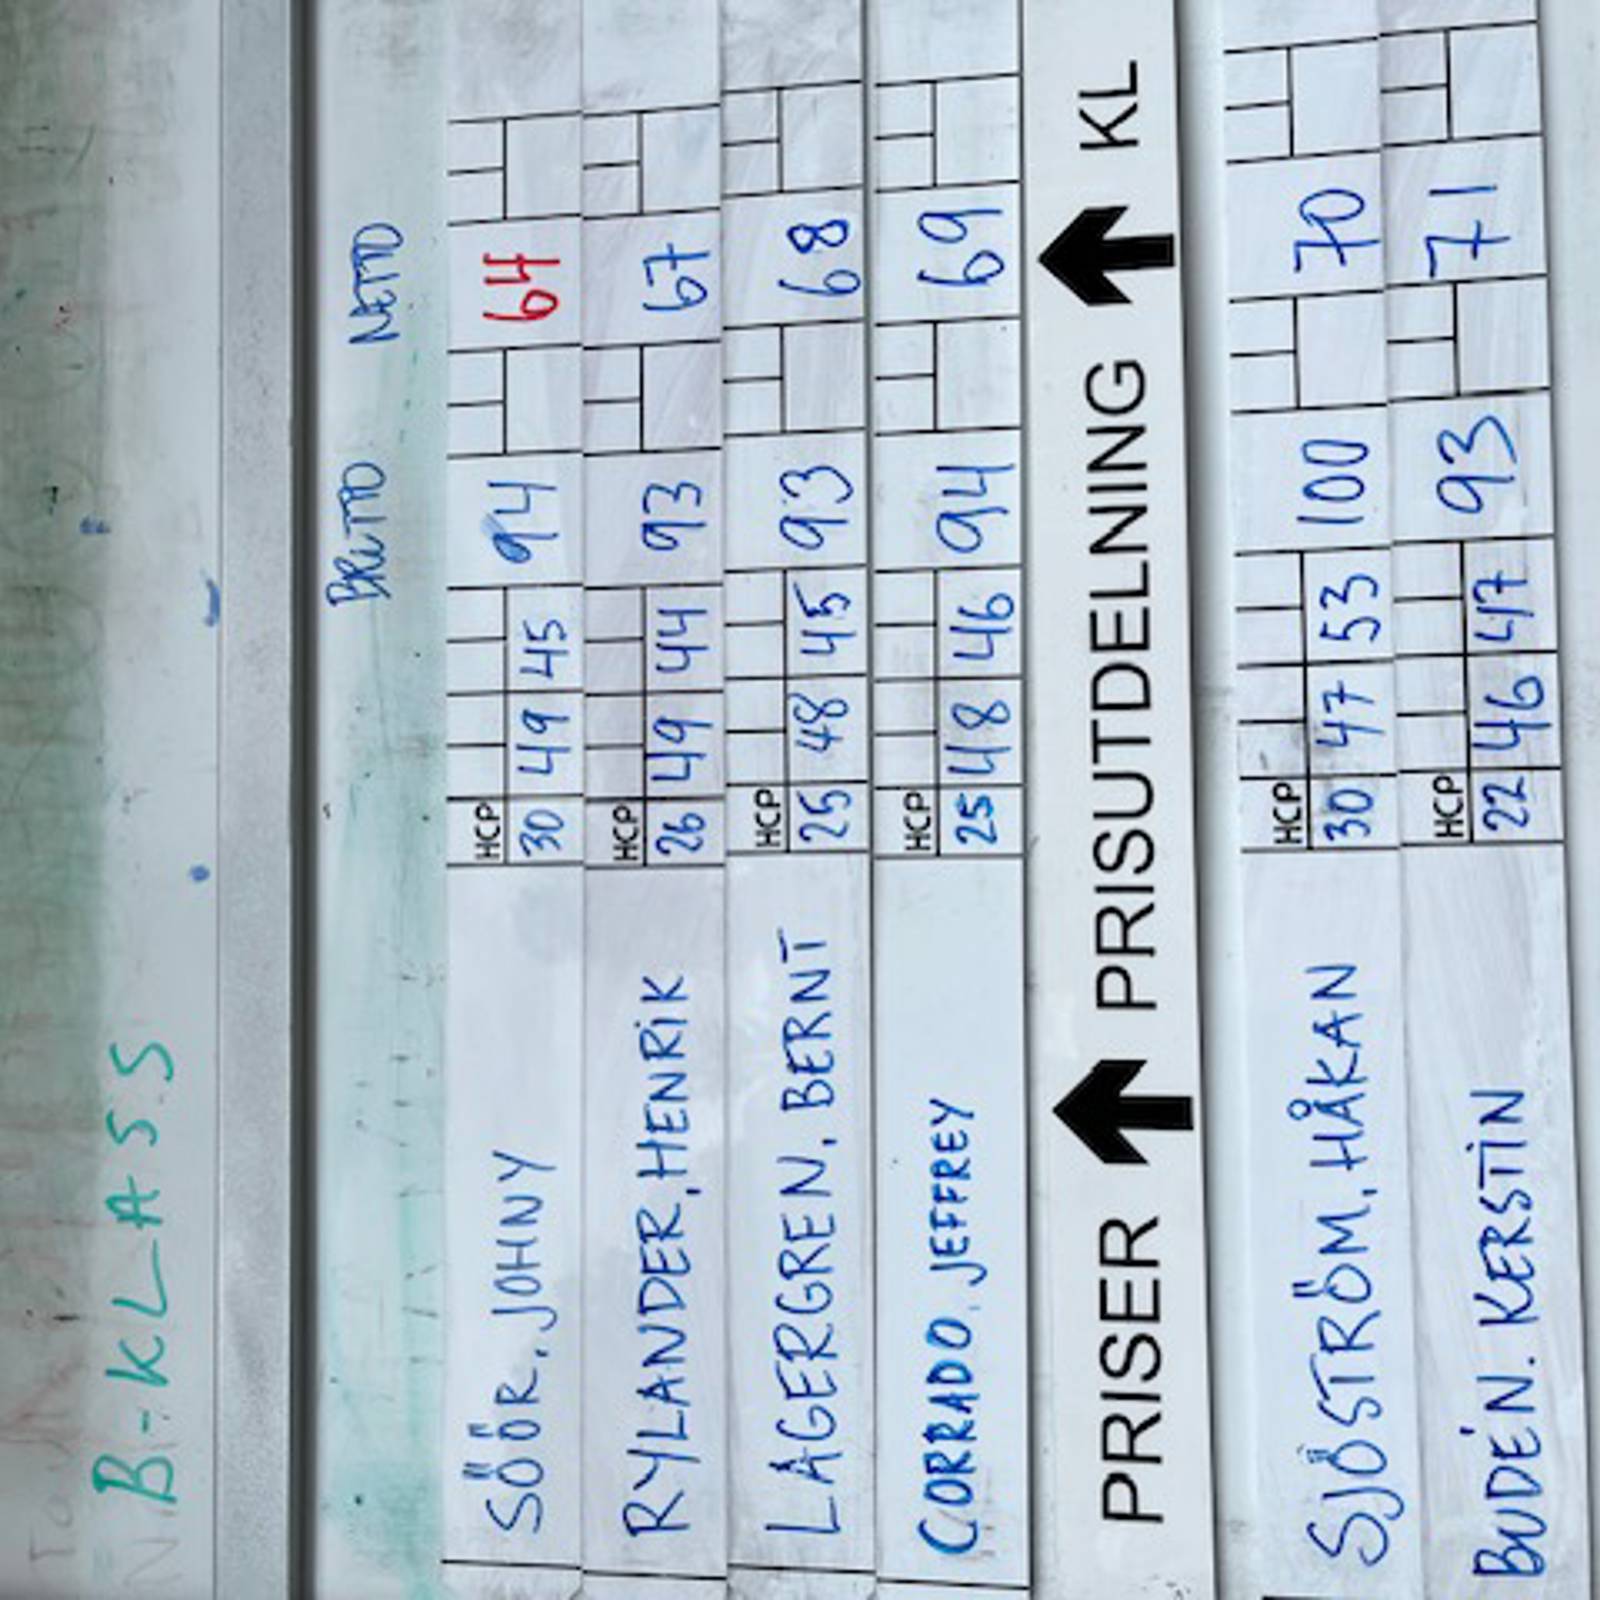 B-KLASS
BRUTTO NETTO
SÖÖR, JOHNY HCP 30 49 45 94 64
RYLANDER, HENRIK HCP 26 49 44 93 67
LAGERGREN, BERNT HCP 25 48 45 93 68
CORRADO, JEFFREY HCP 25 48 46 94 69
PRISER PRISUTDELNING KL
SJÖSTRÖM, HÅKAN HCP 30 47 53 100 70
BUDÉN. KERSTIN HCP 22 46 47 93 71